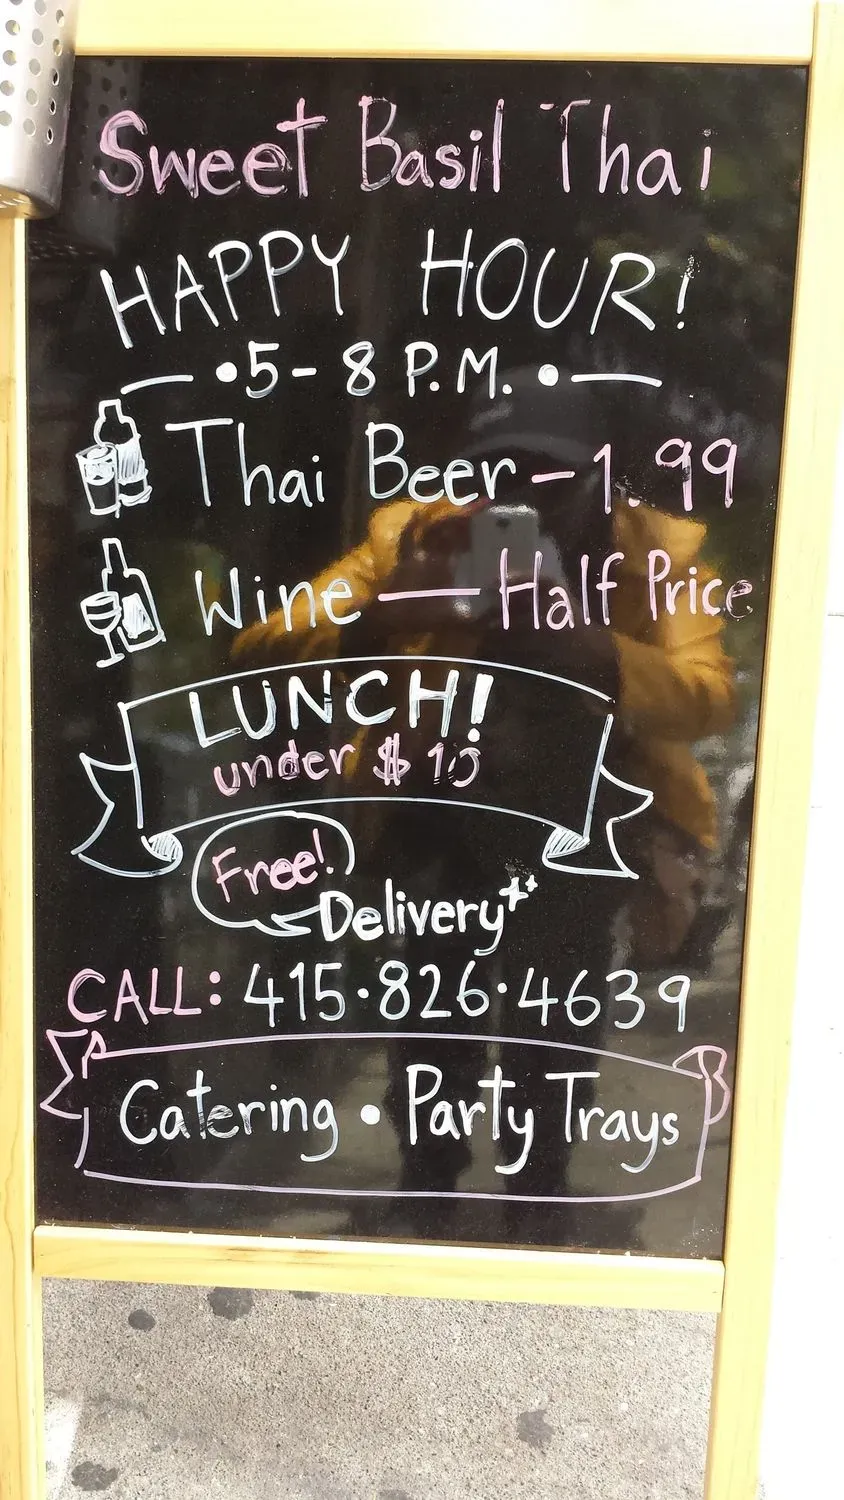 Sweet Basil Thai
HAPPY HOUR!
5-8 P.M.
Thai Beer - 1.99
Wine — Half Price
LUNCH!
under $10
Free!
Delivery
CALL: 415·826·4639
Catering • Party Trays